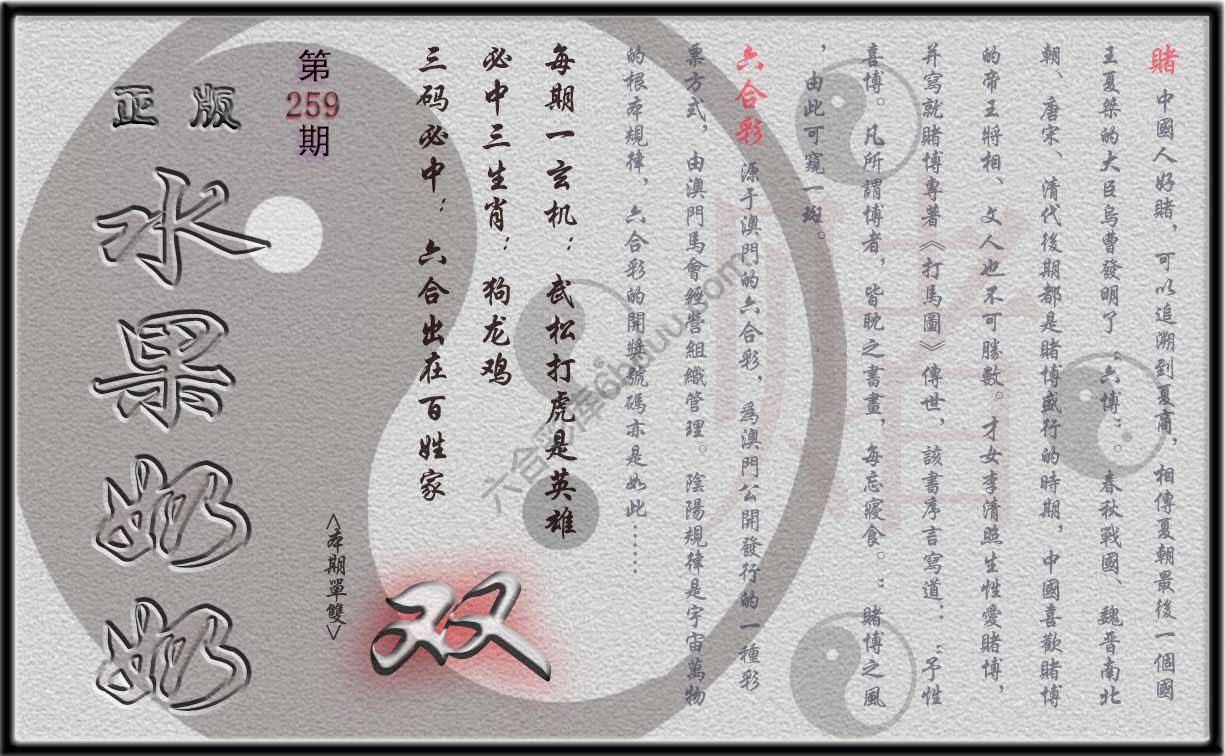 賭 中國人好賭，可以追溯到夏商，相傳夏朝最後一個國
王夏桀的大臣烏曹發明了“六博”。春秋戰國、魏晋南北
朝、唐宋、清代後期都是賭博盛行的時期，中國喜歡賭博
的帝王將相、文人也不可勝數。才女李清照生性愛賭博，
并寫就賭博專著《打馬圖》傳世，該書序言寫道：“予性
喜博。凡所謂博者，皆眈之書畫，每忘寢食。”賭博之風
，由此可窺一斑。
六合彩 源于澳門的六合彩，爲澳門公開發行的一種彩
票方式，由澳門馬會經營組織管理。陰陽規律是宇宙萬物
的根本規律，六合彩的開獎號碼亦是如此……
每期一玄机：武松打虎是英雄
必中三生肖：狗龙鸡
三码必中：六合出在百姓家
第259期
<本期單雙>
双
正版
水果奶奶
賭
六合彩库6bduu.com